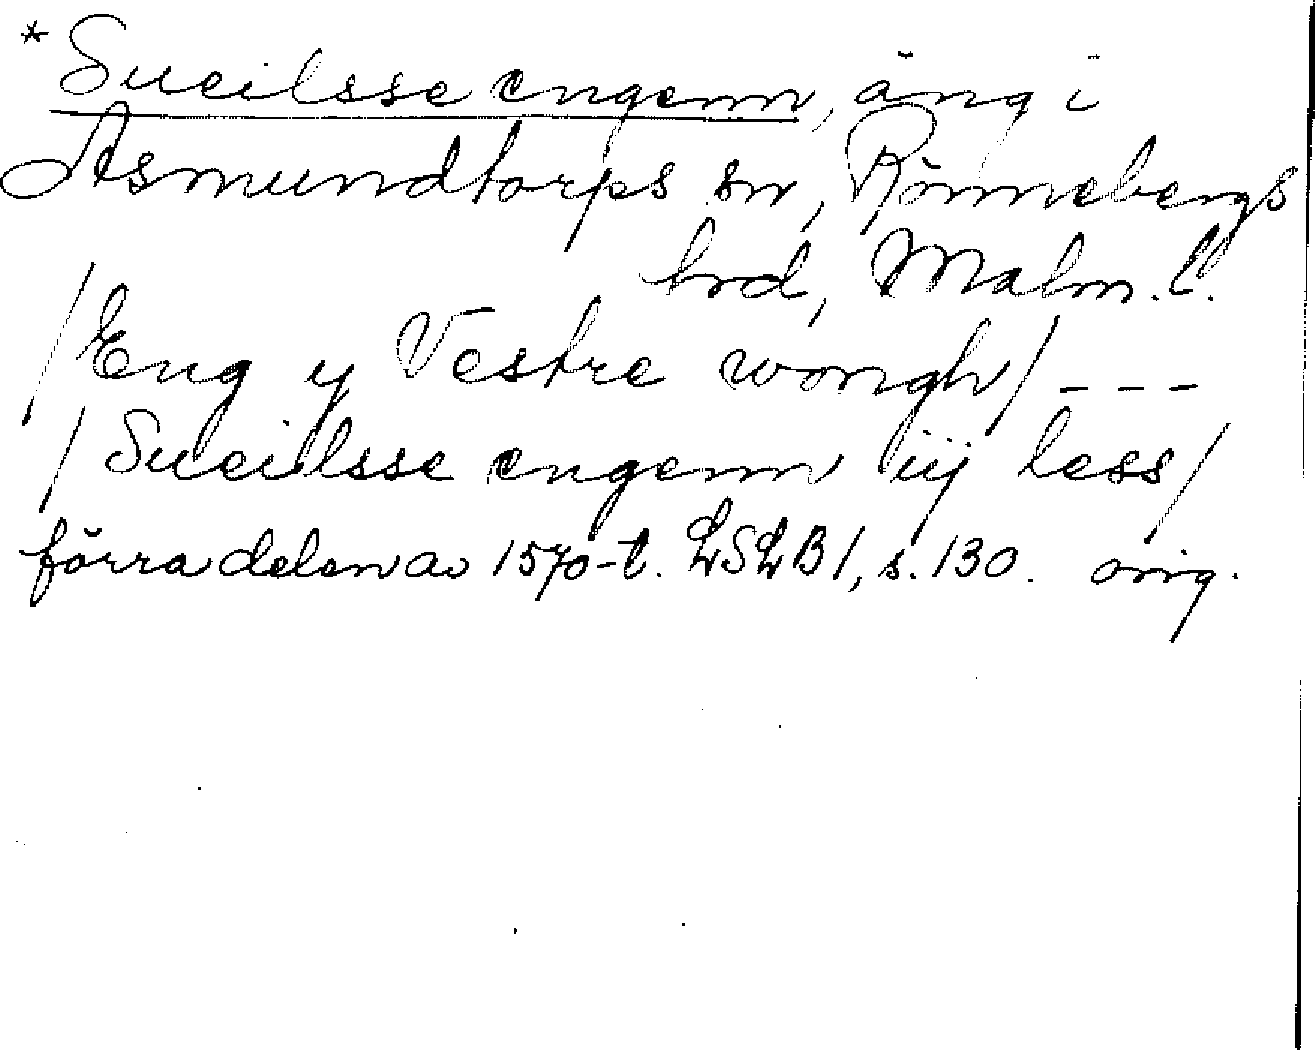 * Sueilsse engenn, äng i
Asmundtorps sn, Rönnebergs
hrd, Malm. l.
/Eng y Vestre wongh/ ---
/Sueilsse engenn iij less/
förra delen av 1570-t. LSLB1, s. 130. orig.